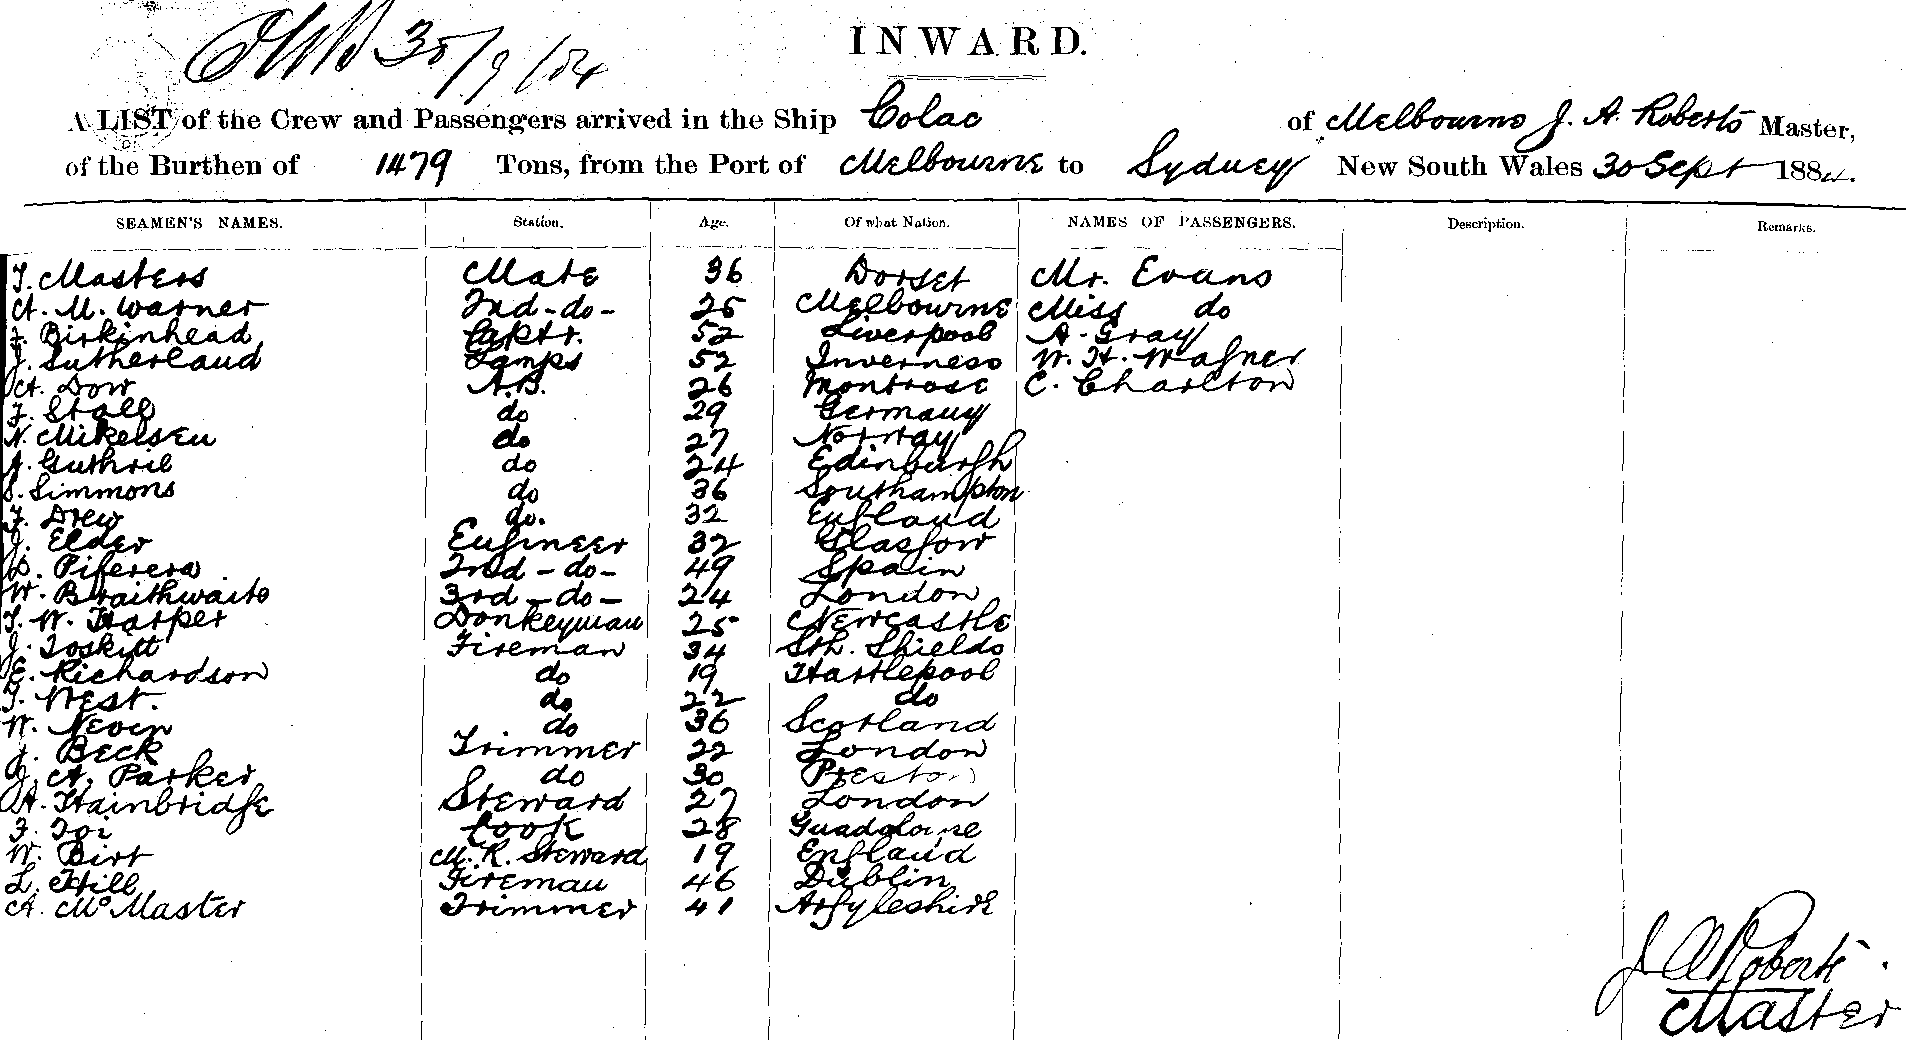 30/9/84
INWARD.
A LIST of the Crew and Passengers arrived in the Ship Colac of Melbourne J. A. Roberts Master,
of the Burthen of 1479 Tons, from the Port of Melbourne to Sydney New South Wales 30 Sept 1884.
SEAMEN'S NAMES. Station. Age. Of what Nation. NAMES OF PASSENGERS. Description. Remarks.
T. Masters Mate 36 Dorset Mr. Evans
A. M. Warner 2nd - do - 25 Melbourne Miss do
Birkinhead Carptr. 52 Liverpool A. Gray
J. Sutherland Lamps 52 Inverness W. H. Wagner
A. Dow A.B. 26 Montrose C. Charlton
Stall do 29 Germany
N. Mikelsen do 27 Norway
J. Guthrie do 24 Edinburgh
S. Simmons do 36 Southampton
Drew do. 32 England
J. Elder Engineer 32 Glasgow
Piferera 2nd - do - 49 Spain
W. Braithwaite 3rd - do - 24 London
T. W. Harper Donkeyman 25 Newcastle
J. Foskitt Fireman 34 Sth. Shields
E. Richardson do 19 Hartlepool
T. West. do 22 do
W. Neven do 36 Scotland
J. Beck Trimmer 22 London
J. A. Parker do 30 Preston
A. Hainbridge Steward 27 London
F. Foi Cook 28 Guadaloupe
W. Birt M. R. Steward 19 England
L. Hill Fireman 46 Dublin
A. McMaster Trimmer 41 Argyleshire
J A Roberts
Master